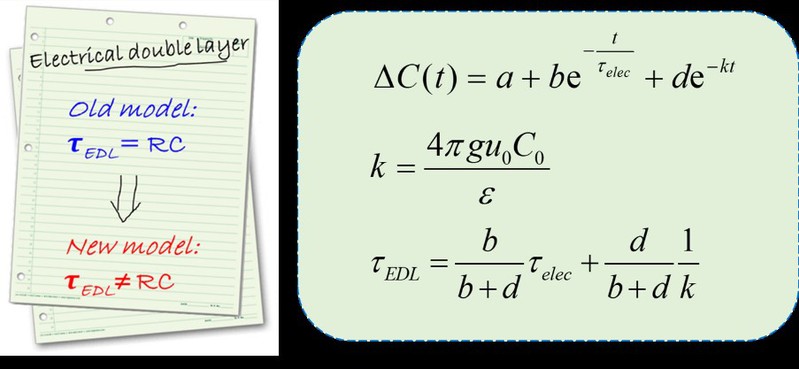 Electrical double layer
Old model:
τ_EDL = RC
⇓
New model:
τ_EDL ≠ RC
ΔC(t) = a + be^(-t/τ_elec) + de^(-kt)
k = 4πgu₀C₀/ε
τ_EDL = b/(b+d) τ_elec + d/(b+d) 1/k